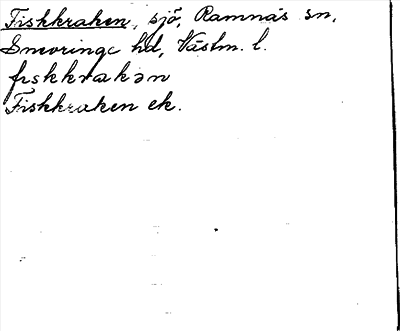 Fiskkraken, sjö, Ramnäs sn,
Snevringe hd, Västm. l.
fıskkrakən
Fiskkraken ek.